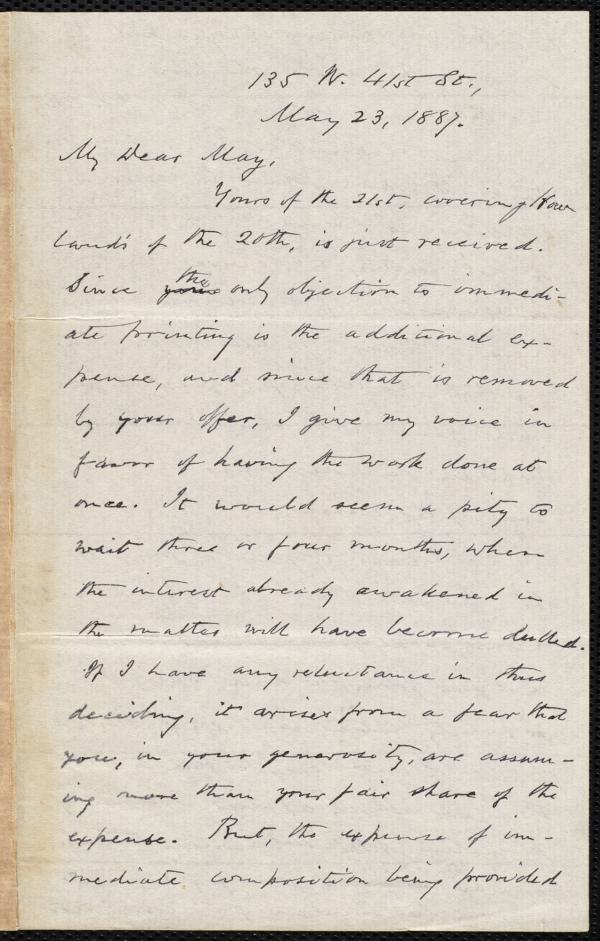 135 W. 41st St.,
May 23, 1887.
My Dear May,
Yours of the 21st, covering How
land's of the 20th, is just received.
Since yours the only objection to immedi-
ate printing is the additional ex-
pense, and since that is removed
by your offer, I give my voice in
favor of having the work done at
once. It would seem a pity to
wait three or four months, when
the interest already awakened in
the matter will have become dulled.
If I have any reluctance in thus
deciding, it arises from a fear that
you, in your generosity, are assum-
ing more than your fair share of the
expense. But, the expense of im-
mediate composition being provided